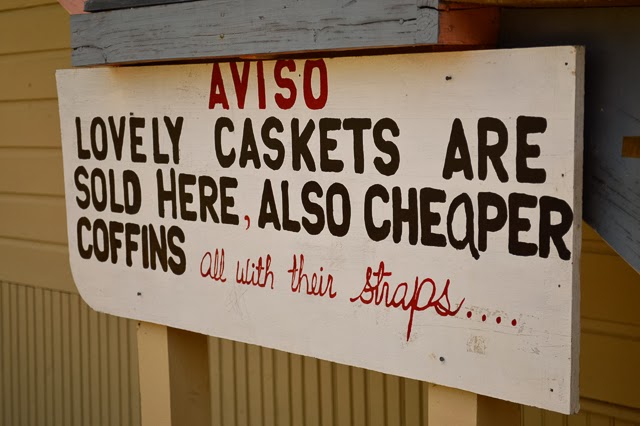 AVISO
LOVELY CASKETS ARE
SOLD HERE, ALSO CHEAPER
COFFINS all with their straps....